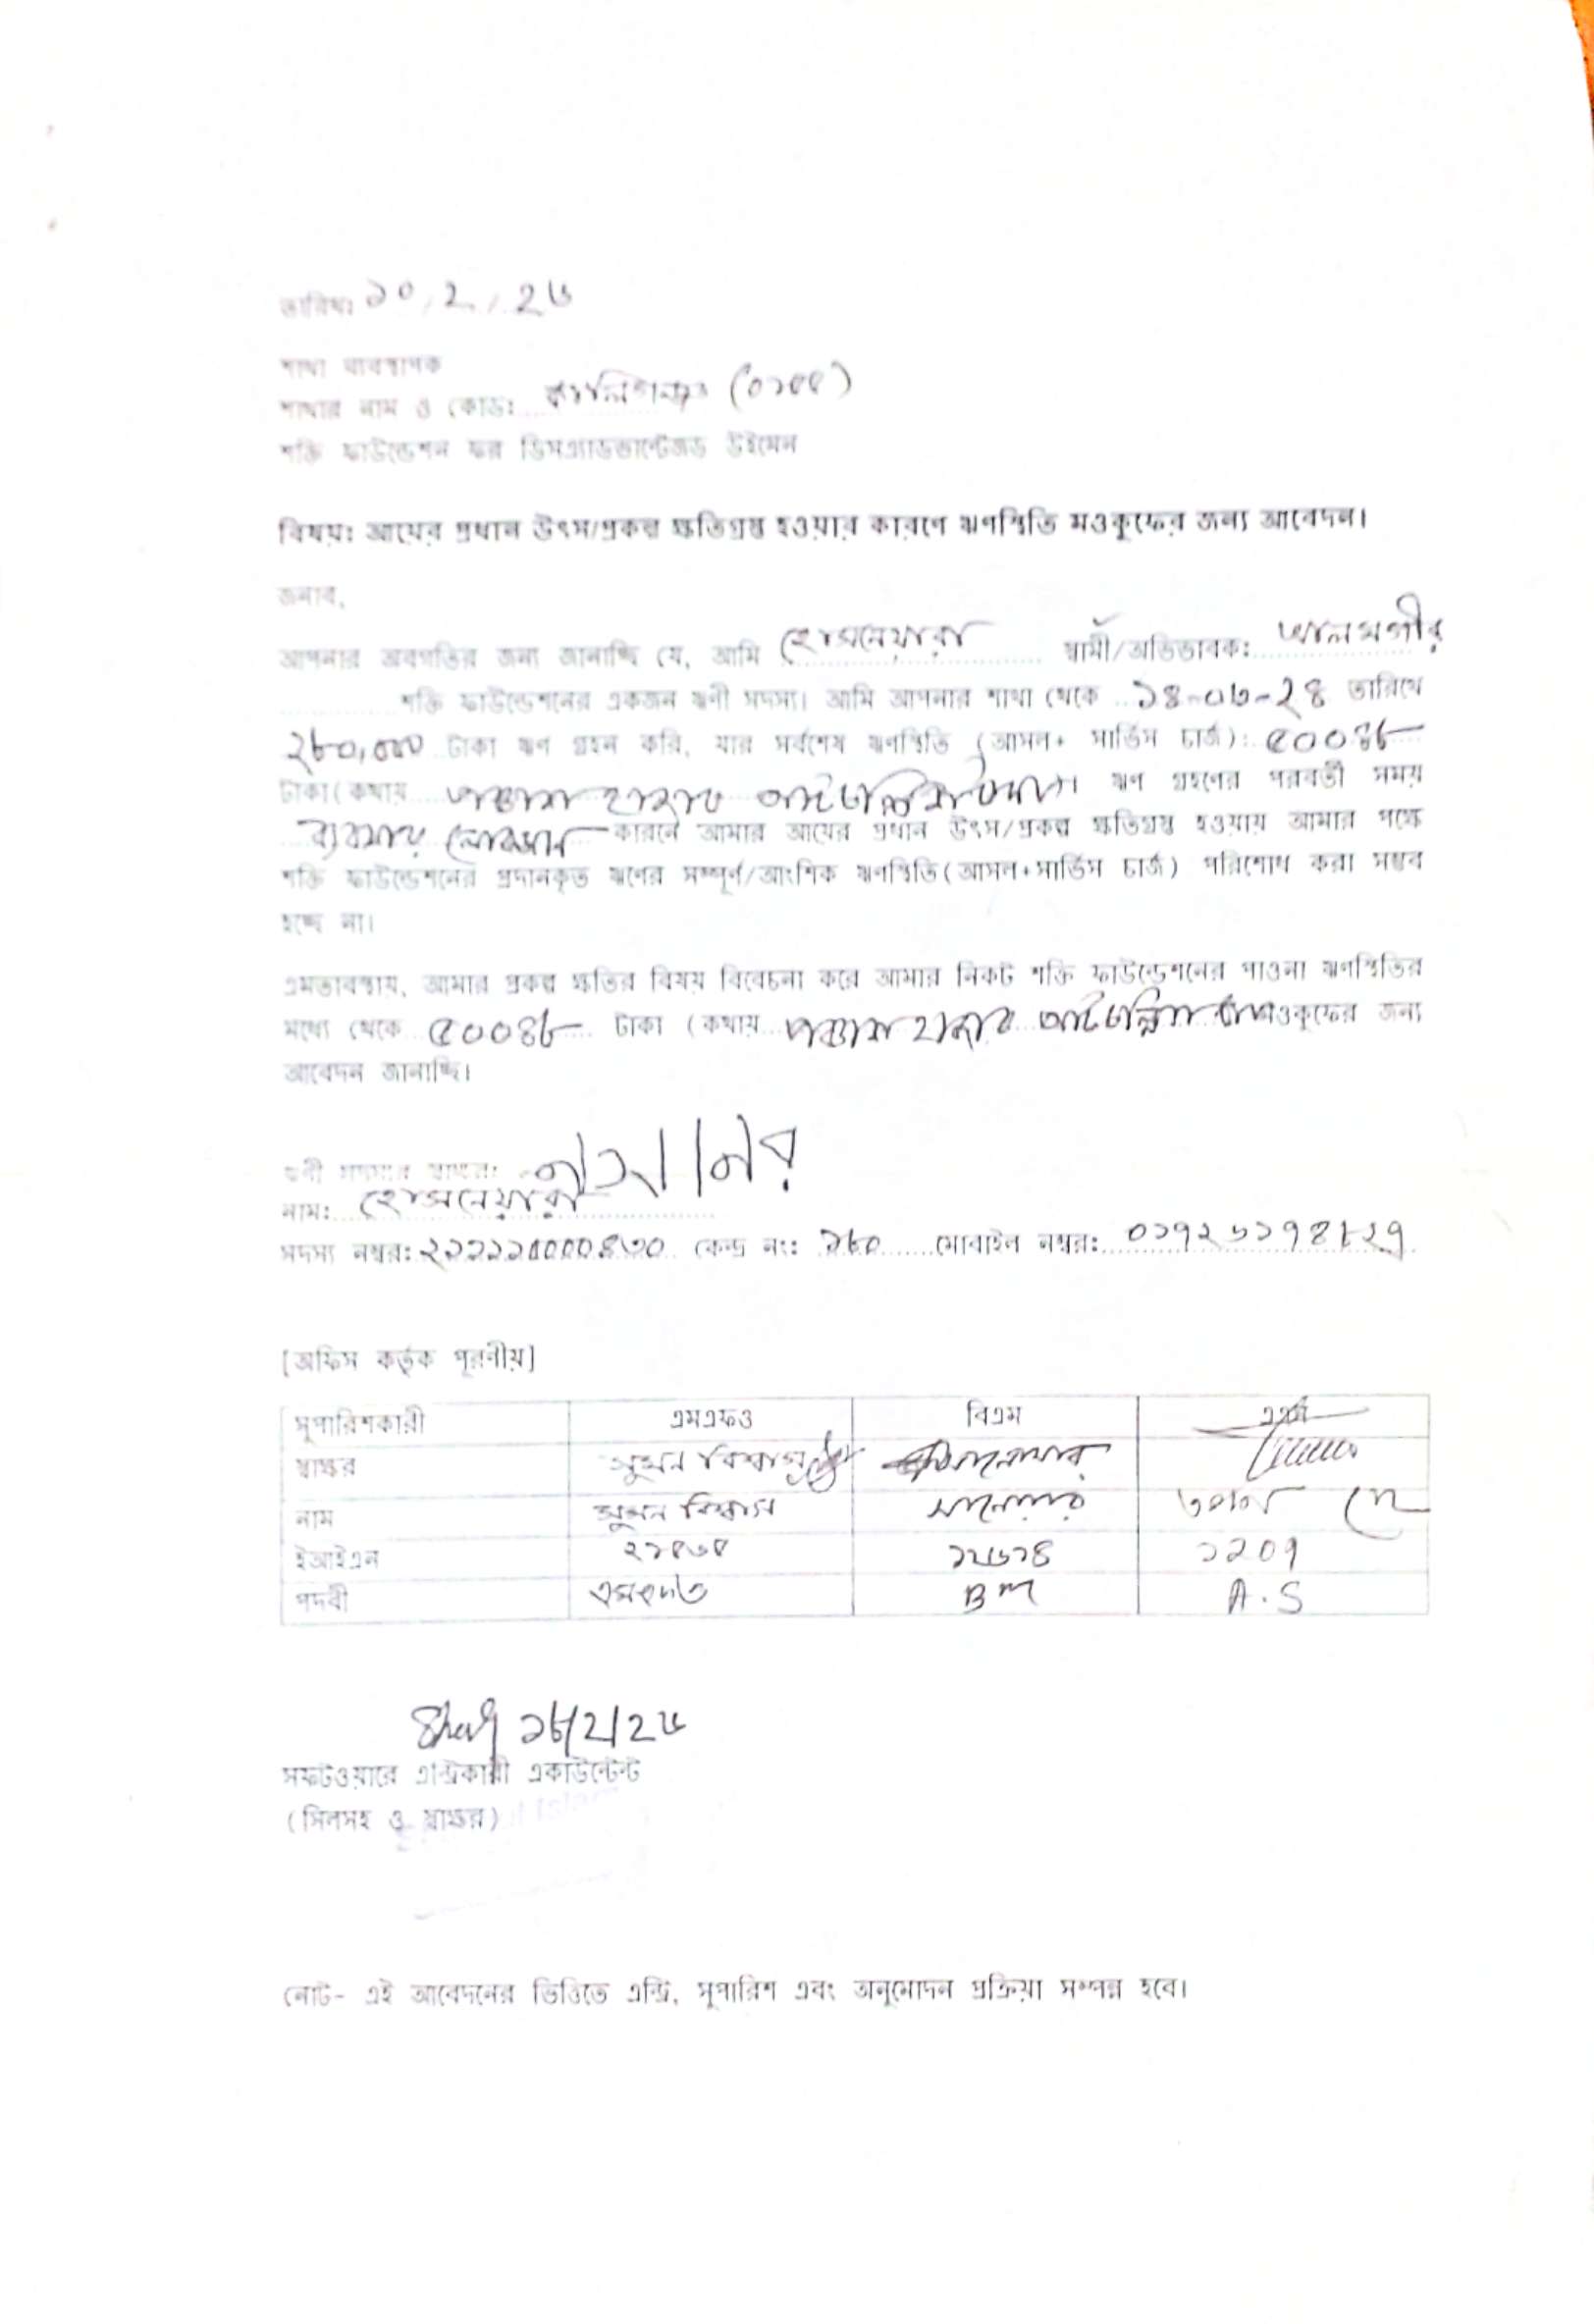 তারিখঃ ১০/২/২৬
শাখা ব্যবস্থাপক
শাখার নাম ও কোডঃ কালিগঞ্জ (০১৫৫)
শক্তি ফাউন্ডেশন ফর ডিসএ্যাডভান্টেজড উইমেন
বিষয়ঃ আয়ের প্রধান উৎস/প্রকল্প ক্ষতিগ্রস্ত হওয়ার কারণে ঋণস্থিতি মওকুফের জন্য আবেদন।
জনাব,
আপনার অবগতির জন্য জানাচ্ছি যে, আমি হোসনেয়ারা স্বামী/অভিভাবকঃ আলমগীর
শক্তি ফাউন্ডেশনের একজন ঋণী সদস্য। আমি আপনার শাখা থেকে ১৪-০৬-২৪ তারিখে
২৮০,০০০ টাকা ঋণ গ্রহন করি, যার সর্বশেষ ঋণস্থিতি (আসল+ সার্ভিস চার্জ): ৫০০৪৮
টাকা(কথায় পঞ্চাশ হাজার আটচল্লিশ টাকা)। ঋণ গ্রহণের পরবর্তী সময়
ব্যবসায় লোকসান কারনে আমার আয়ের প্রধান উৎস/প্রকল্প ক্ষতিগ্রস্ত হওয়ায় আমার পক্ষে
শক্তি ফাউন্ডেশনের প্রদানকৃত ঋণের সম্পূর্ণ/আংশিক ঋণস্থিতি(আসল+সার্ভিস চার্জ) পরিশোধ করা সম্ভব
হচ্ছে না।
এমতাবস্থায়, আমার প্রকল্প ক্ষতির বিষয় বিবেচনা করে আমার নিকট শক্তি ফাউন্ডেশনের পাওনা ঋণস্থিতির
মধ্যে থেকে ৫০০৪৮ টাকা (কথায় পঞ্চাশ হাজার আটচল্লিশ মওকুফের জন্য
আবেদন জানাচ্ছি।
ঋণী সদস্যের স্বাক্ষরঃ
নামঃ হোসনেয়ারা
সদস্য নম্বরঃ ২১১১১৫০০০৪৩০ কেন্দ্র নংঃ ১৮০ মোবাইল নম্বরঃ ০১৭২৬১৭৪৮২৭
[অফিস কর্তৃক পূরণীয়]
সুপারিশকারী এমএফও বিএম
স্বাক্ষর সুমন বিশ্বাস
নাম সুমন বিশ্বাস
ইআইএন ২১৫৩৫ ১২৬১৪ ১২০৭
পদবী এমএফও BM A.S
১৮/২/২৬
সফটওয়ারে এন্ট্রিকারী একাউন্টেন্ট
(সিলসহ ও স্বাক্ষর)
নোট- এই আবেদনের ভিত্তিতে এন্ট্রি, সুপারিশ এবং অনুমোদন প্রক্রিয়া সম্পন্ন হবে।